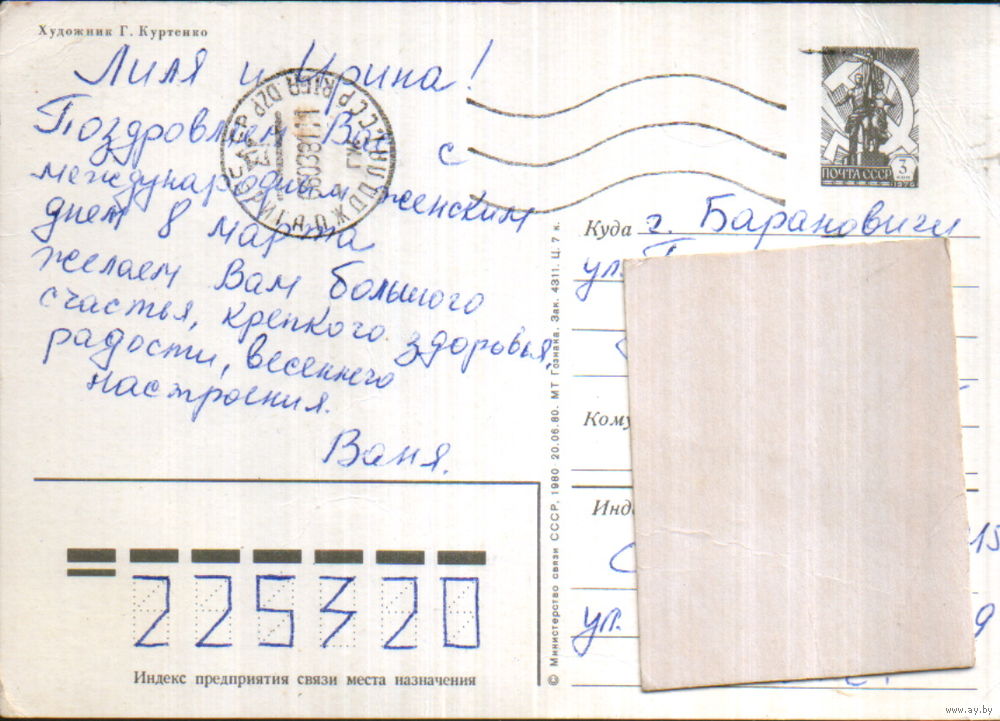 Художник Г. Куртенко
Лиля и Ирина!
Поздровляем Вас с
международным женским
днем 8 марта
желаем Вам большого
счастья, крепкого здоровья,
радости, весеннего
настроения.
Ваня.
225320
Индекс предприятия связи места назначения
© Министерство связи СССР, 1980 20.06.80. МТ Гознака. Зак. 4311. Ц. 7 к.
ПОЧТА СССР
3
КОП
1976
Куда г. Барановичи
ул.
Кому
Инд
15
ул.
9
www.ay.by